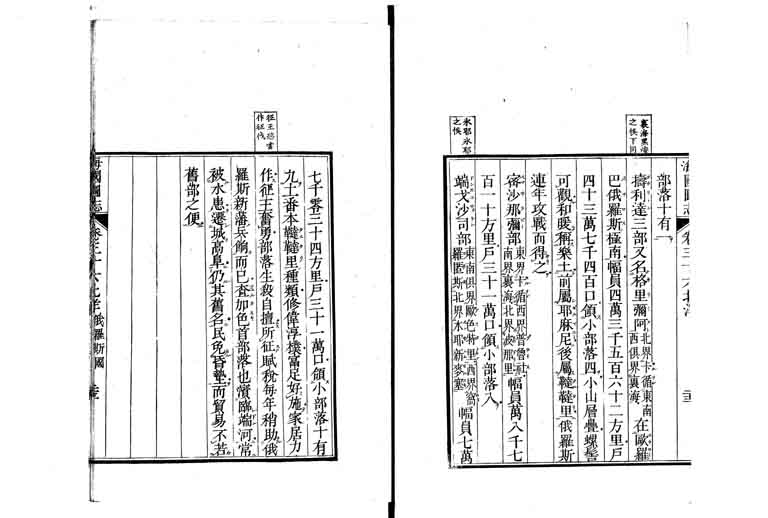 裏海黑海
之悞下同
海國圖志
卷三十六 北洋
部落十有
擣利達三部又名格里彌阿北界卡循東南
西俱界裏海在歐羅
巴俄羅斯極南幅員四萬三千五百六十二方里戶
四十三萬七千四百口領小部落四小山層疊螺髻
可觀和暖稱樂土前屬耶麻尼後屬韃韃里俄羅斯
連年攻戰而得之
密沙那彌部東界卡循西界普魯社
南界裏海北界波那里幅員萬八千七
百一十方里戶三十一萬口領小部落八
氷耶氷耶
之悞
端戈沙司部東南俱界歐色特里西界窩
羅匿斯北界氷耶新麥塞幅員七萬
七千零三十四方里戶三十一萬口領小部落十有
九十一番本韃韃里種類修偉淳樸富足好施家居力
作征王奮勇部落生殺自擅所征賦稅每年稍助俄
羅斯新藩兵餉而已查加色首部落也濱臨端河常
被水患遷城高阜仍其舊名民免昏墊而貿易不若
舊部之便
征王恐當
作征伐
海國圖志
卷三十六 北洋 俄羅斯國